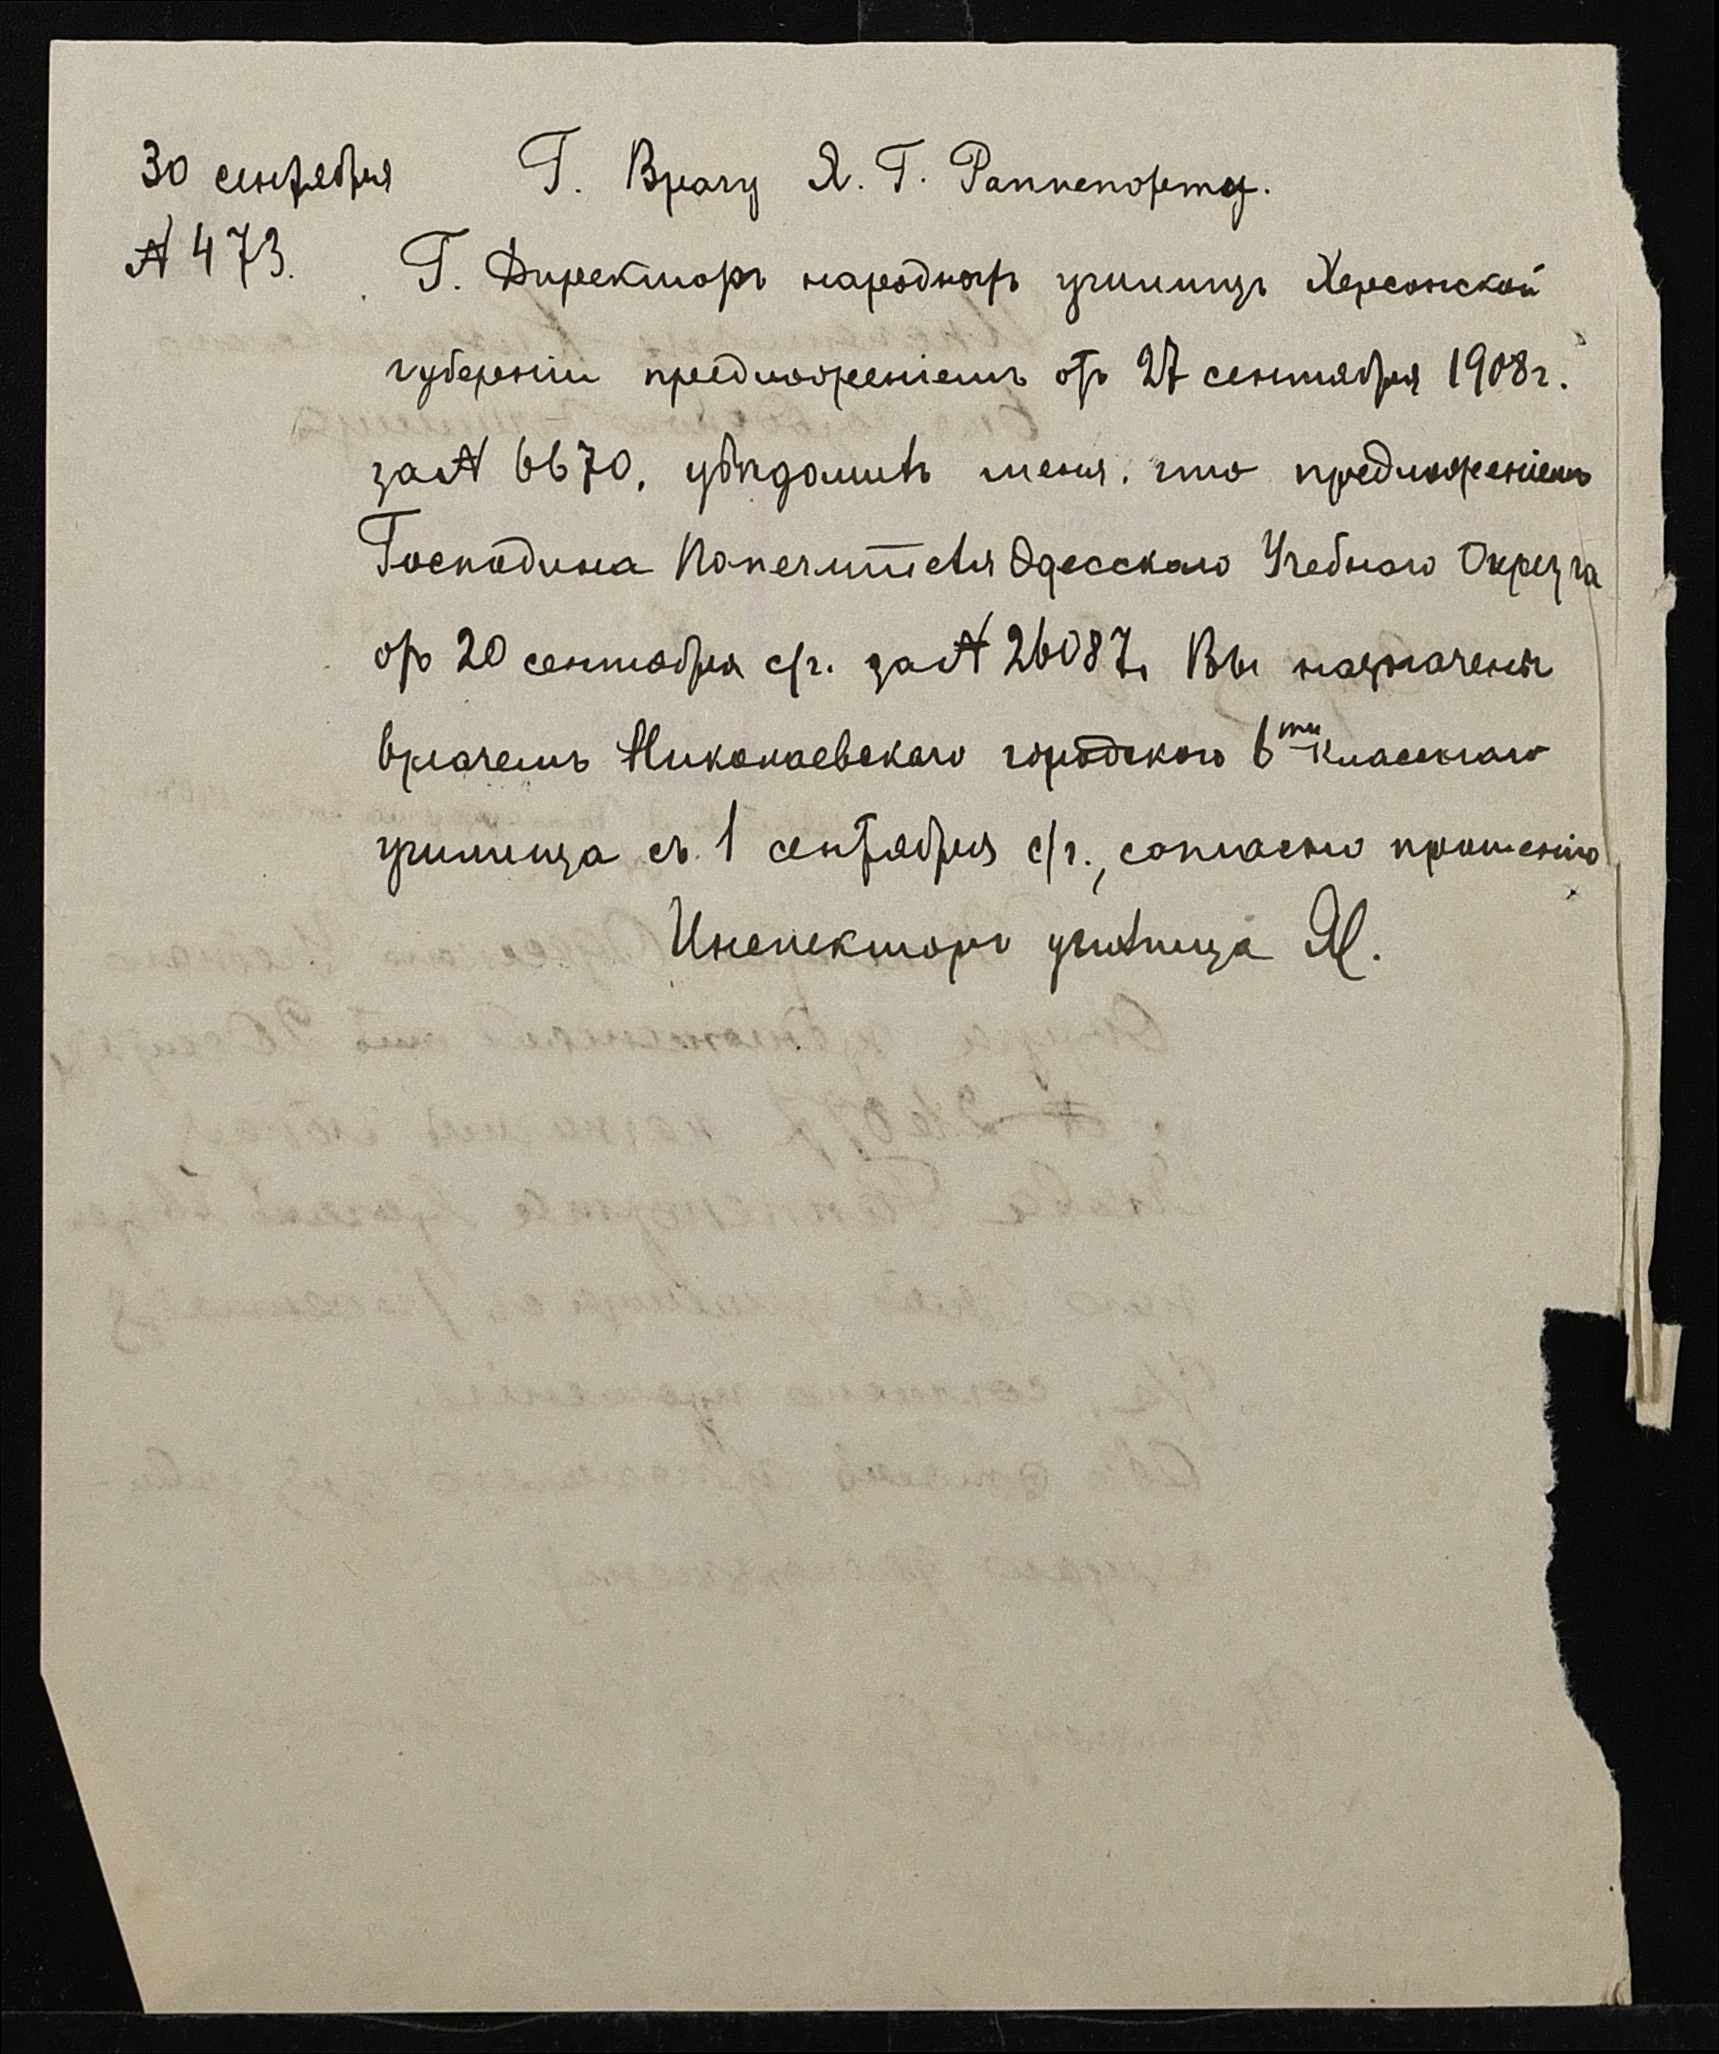 30 сентября
Г. Врачу Я. Г. Раппепорту.
№ 473.
Г. Директоръ народныхъ училищъ Херсонской
губерніи предложеніемъ отъ 27 сентября 1908 г.
за № 6670, увѣдомилъ меня, что предложеніемъ
Господина Попечителя Одесскаго Учебнаго Округа
отъ 20 сентября с/г. за № 26087, Вы назначены
врачемъ Николаевскаго городского 6ти классного
училища съ 1 сентября с/г., согласно прошенію
Инспекторъ училища